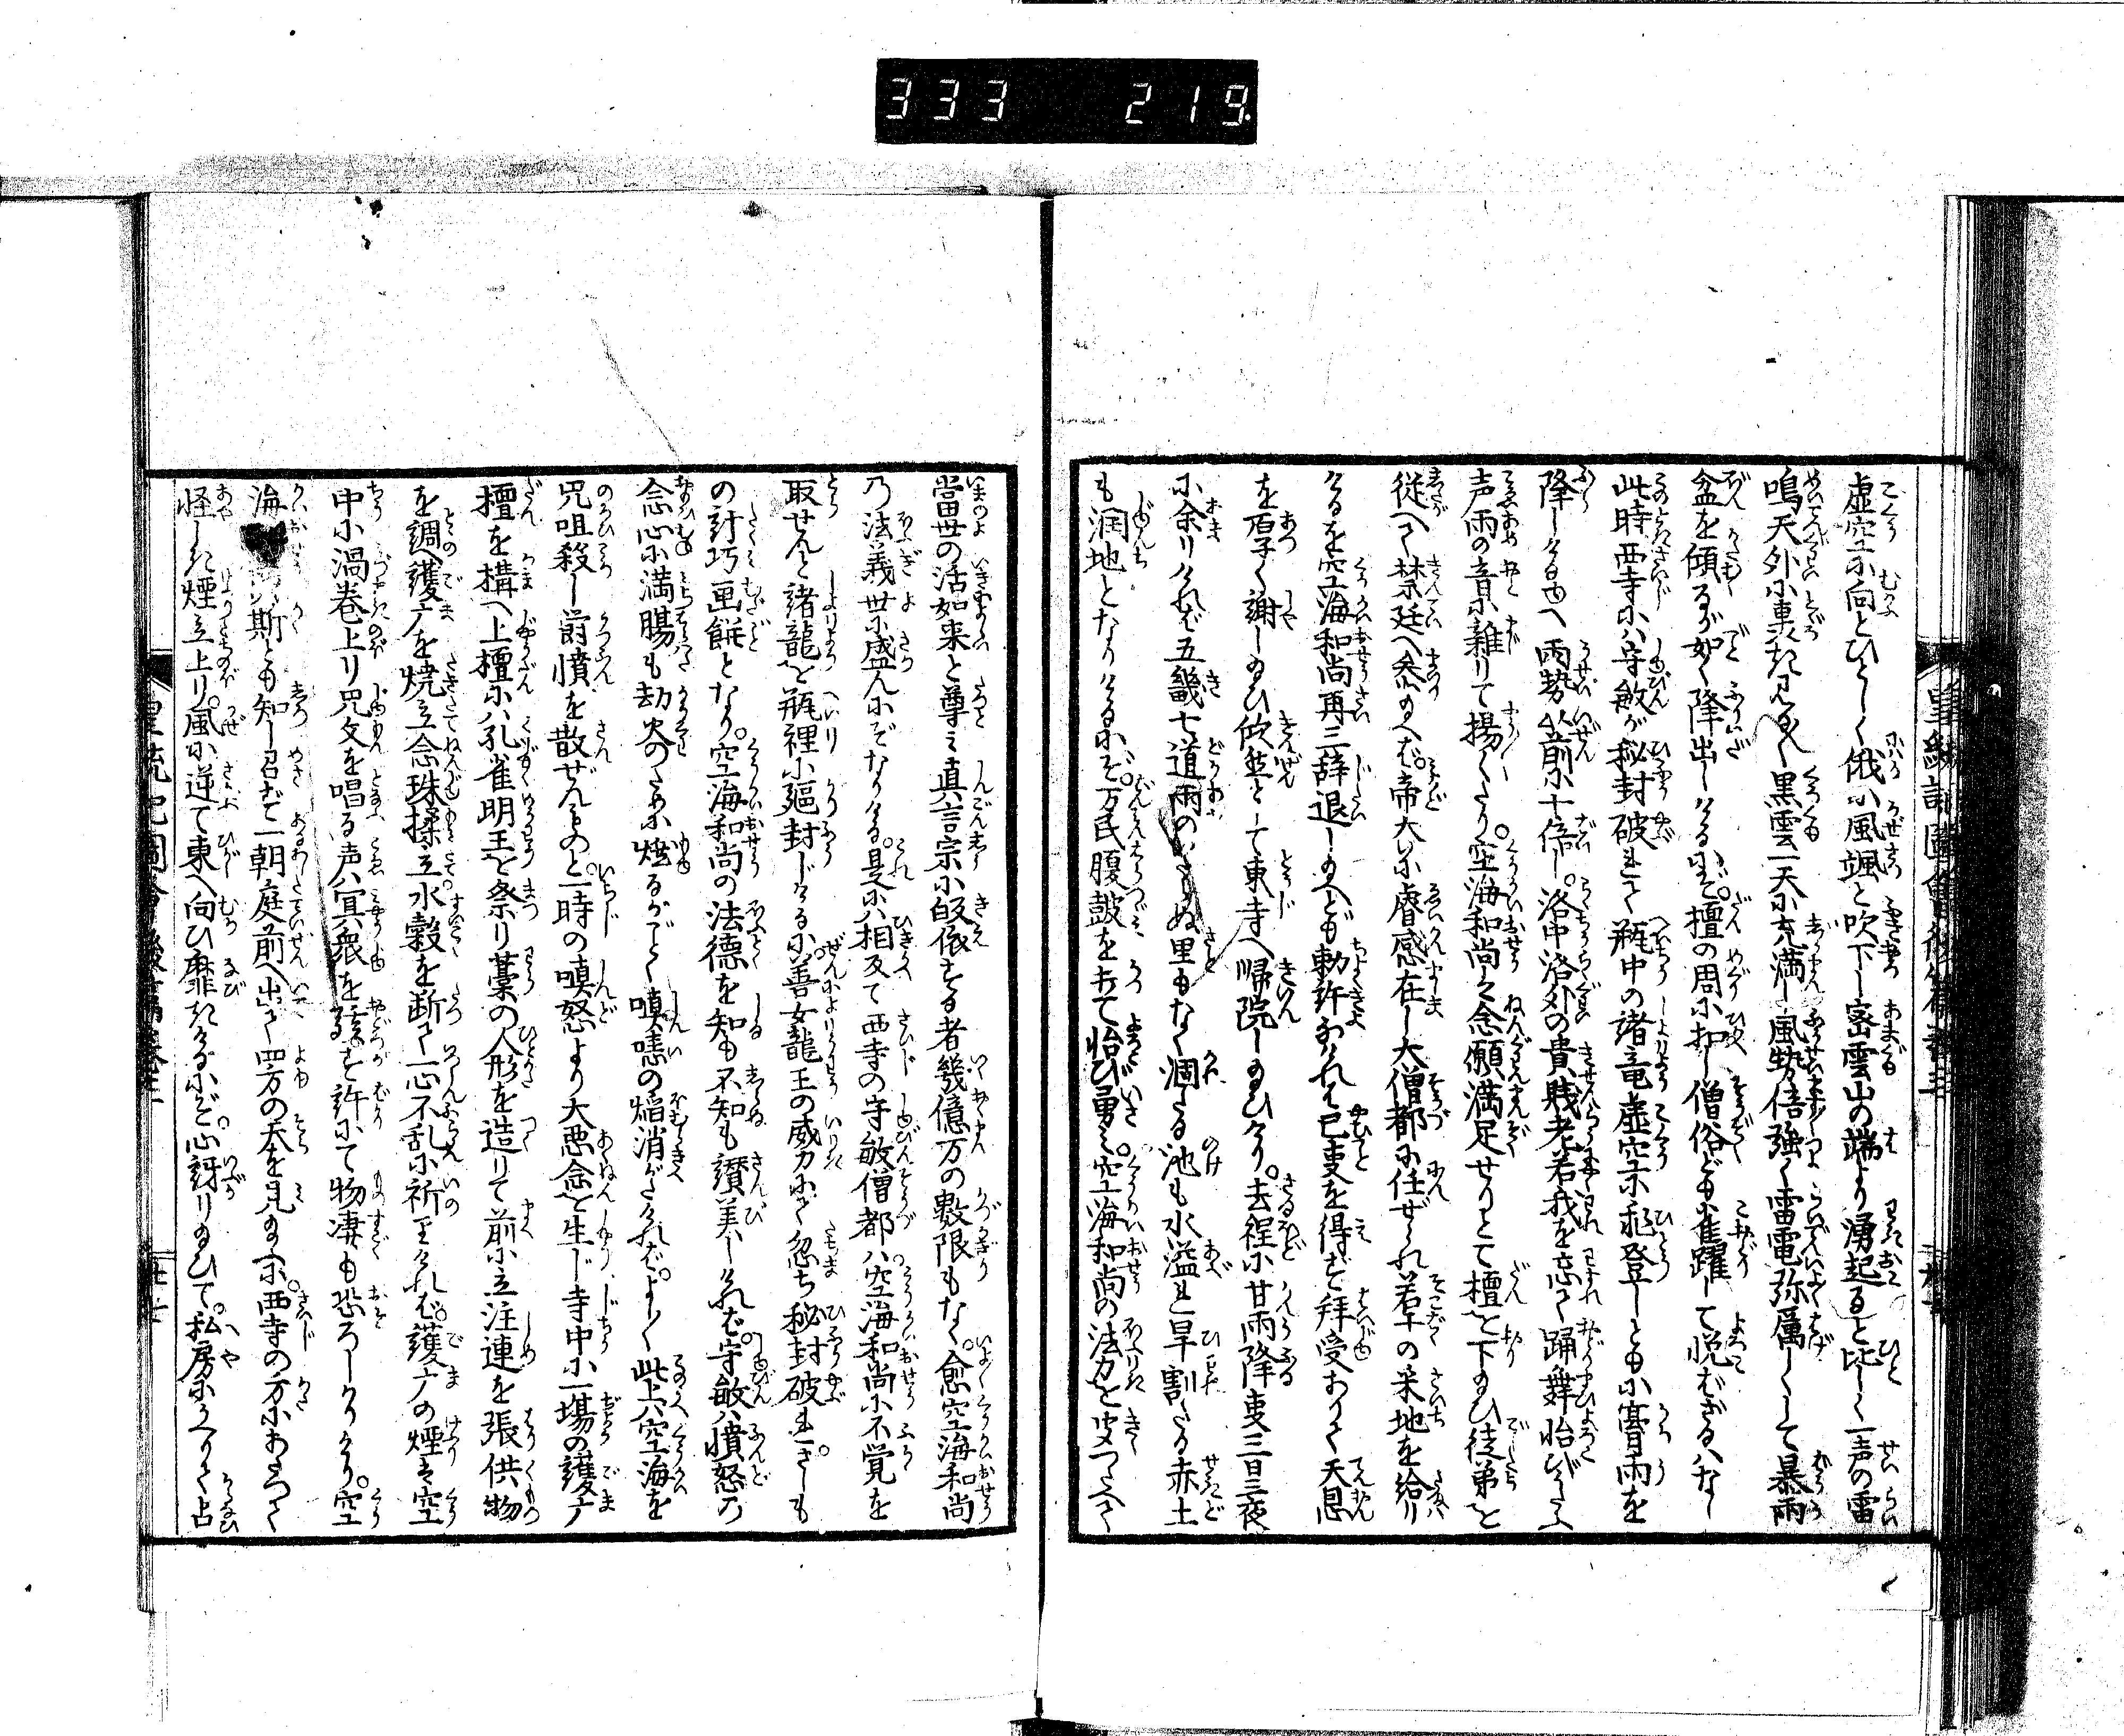 333 219
虚空に向とひとしく俄に風颯と吹下し密雲山の端より湧起ると比しく一声の雷
鳴天外に轟きわたり黒雲一天に充満し風勢倍強く雷電弥厲しくして暴雨
盆を傾るが如く降出しけるにぞ檀の周に扣し僧俗ども雀躍して悦ばざるはなし
此時西寺には守敏が秘封破れて瓶中の諸竜虚空に飛登しとも小膏雨を
降しけるゆへ雨勢以前に十倍し洛中洛外の貴賎老若我を忘て踊舞怡びどよふ
声雨の音に雑りて揚々たり空海和尚は念願満足せりとて檀を下り給ひ徒弟を
従へて禁廷へ参り給へば帝大に睿感在し大僧都に任ぜられ若干の采地を給り
けるを空海和尚再三辞退し給へども勅許なければ已事を得ず拝受ありて天恩
を厚く謝し給ひ欣然として東寺へ帰院し給ひけり去程に甘雨降事三日三夜
に余りければ五畿七道雨のいたらぬ里もなく涸たる池も水溢れ旱割たる赤土
も潤地となりけるにぞ万民腹鼓を打て怡び勇み空海和尚の法力を聞つたへて
當世の活如来と尊み真言宗に皈依する者幾億万の數限もなく愈空海和尚
乃法義世に盛んにぞなりける是に相反て西寺の守敏僧都は空海和尚に不覚を
取せんと諸龍を瓶裡に駆封じけるに善女龍王の威力にて忽ち秘封破れさしも
の討巧画餅となり空海和尚の法徳を知も不知も讃美しければ守敏は憤怒の
念心に満腸も劫火のために燃るがごとく嗔恚の熖消がたければよしよし此上は空海を
咒咀殺し欝憤を散ぜんものと一時の嗔怒より大悪念を生じ寺中に一場の護广
檀を構へ上檀には孔雀明王を祭り藁の人形を造りて前に立注連を張供物
を調へ護广を焼立念珠揉立水穀を断て一心不乱に祈りければ護广の煙は空
中に渦巻上り咒文を唱る声は冥衆を驚す許にて物凄も恐ろしかりけり空
海 斯とも知し召ざで一朝庭前へ出て四方の天を見給ふに西寺の方にあたつて
怪しき煙立上り風に逆て東へ向ひ靡きけるにぞ心訝り給ひて私房にかへりて占